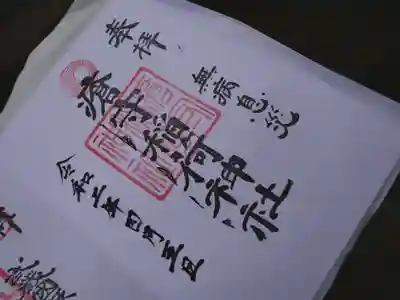 奉拝
無病息災
瘡守稲荷神社
令和二年四月五日